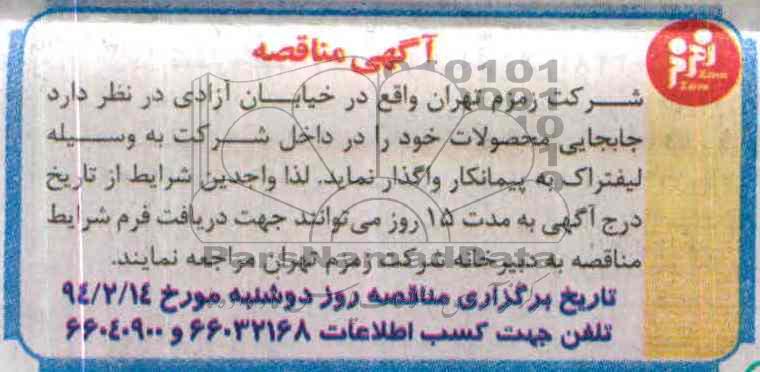 آگهی مناقصه
زمزم
Zam
Zam
شرکت زمزم تهران واقع در خیابان آزادی در نظر دارد
جابجایی محصولات خود را در داخل شرکت به وسیله
لیفتراک به پیمانکار واگذار نماید. لذا واجدین شرایط از تاریخ
درج آگهی به مدت ۱۵ روز می‌توانند جهت دریافت فرم شرایط
مناقصه به دبیرخانه شرکت زمزم تهران مراجعه نمایند.
ParsNamadData
تاریخ برگزاری مناقصه روز دوشنبه مورخ ۹٤/۲/۱٤
تلفن جهت کسب اطلاعات ۶۶۰۳۲۱۶۸ و ۶۶۰٤۰۹۰۰